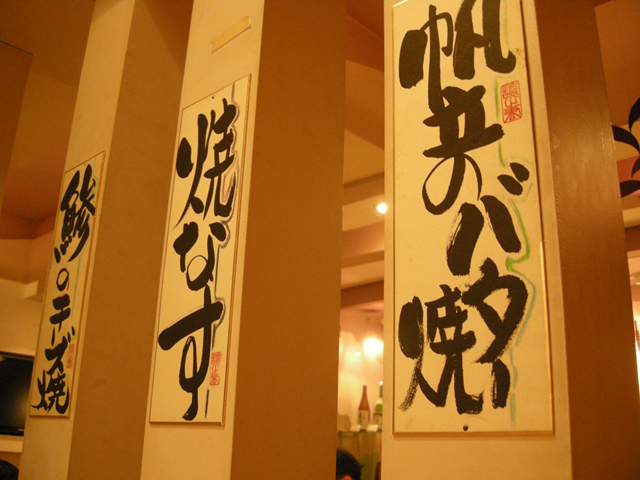 帆立のバター焼
焼なす
鯵のチーズ焼